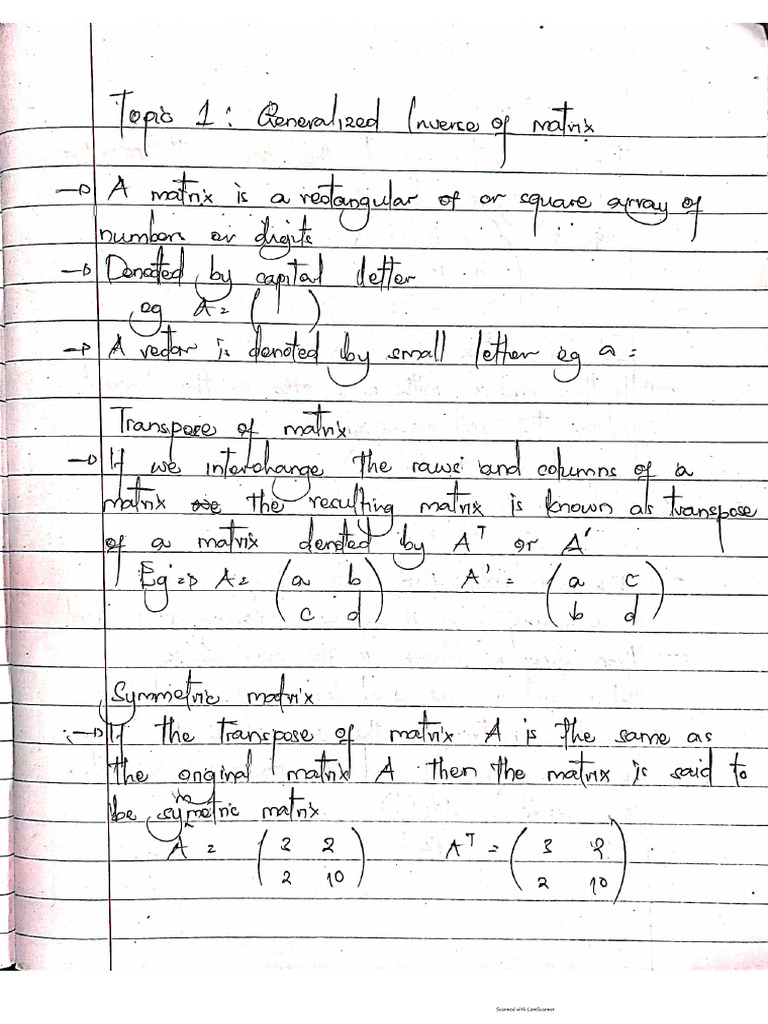 Topic 1: Generalized Inverse of matrix
→ A matrix is a rectangular of or square array of
numbers or digits
→ Denoted by capital letter
eg A = (    )
→ A vector is denoted by small letter eg a =
Transpose of matrix
→ If we interchange the raws and columns of a
matrix the resulting matrix is known as transpose
of a matrix denoted by A^T or A'
Eg => A = ( a b    A' = ( a c
c d )    b d )
Symmetric matrix
→ If the transpose of matrix A is the same as
the original matrix A then the matrix is said to
be symetric matrix
A = ( 3 2    A^T = ( 3 2
2 10 )    2 10 )
Scanned with CamScanner